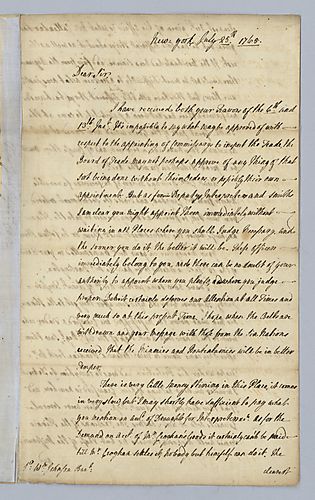 New york July 25th 1768.
Dear Sir,
I have received both your Favors of the 6th and
13th Inst. Its impossible to say what may be approved of with
respect to the appointing of Commissarys to inspect the Trade, the
Board of Trade may not perhaps approve of any thing of that
sort being done without their Orders or possibly their own
appointment. But as for Deputys, Interpreters and Smiths
I am clear you might appoint them immediately without
waiting in all Places where you shall Judge Necessary, and
the sooner you do it the better it will be. These Officers
immediately belong to you, and there can be no doubt of your
authority to appoint where you please, and where you judge
proper. Detroit certainly deserves our attention at all Times and
very much so at this present Time. I hope when the Belts are
withdrawn and your message with those from the Six Nations
received that the Miamies and Pouteatamies will be in better
temper.
There is very little money stirring in this Place, it comes
in very slow, but I may shortly have sufficient to pay what
you mention on acct. of Demands for the Department. As for the
Demand on acct. of Mr. Croghan's Goods it certainly can't be paid
till Mr. Croghan settles it, nobody but himself can do it. The
Sr. Wm. Johnson Bart.
clearest